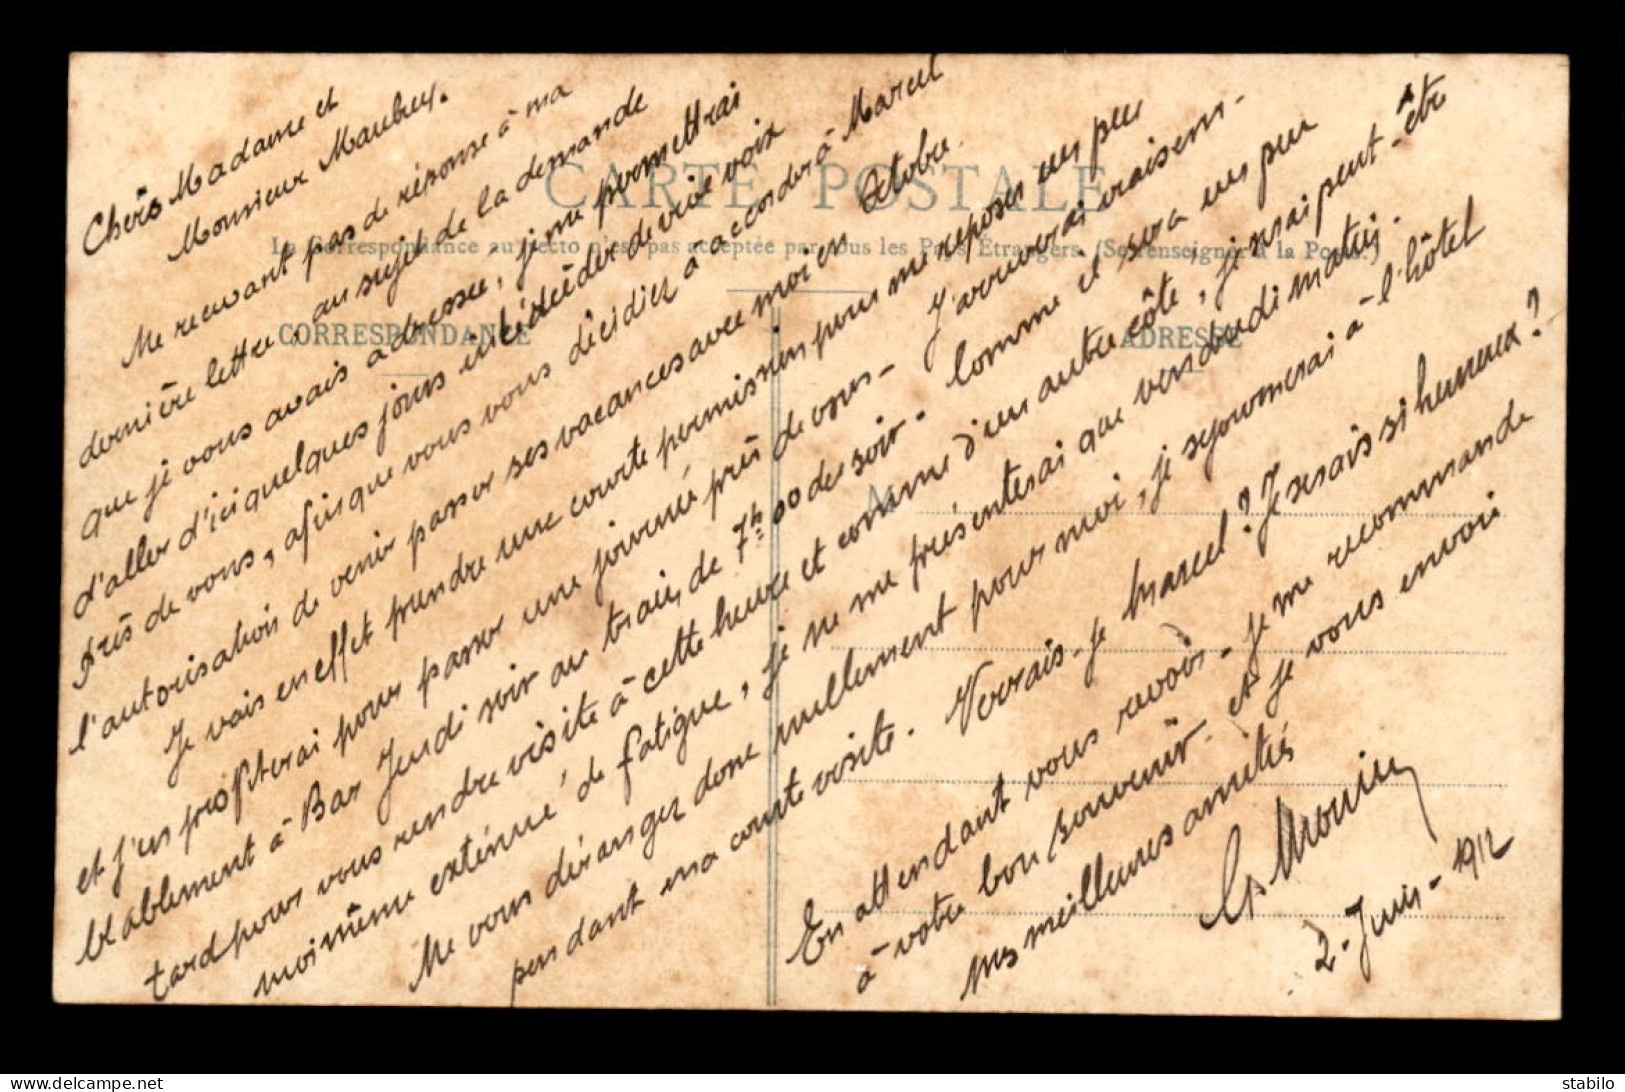 CARTE POSTALE
La Correspondance au recto n'est pas acceptée par tous les Pays Étrangers. (Se renseigner à la Poste.)
CORRESPONDANCE
ADRESSE
M
Chers Madame et
Monsieur
Ne recevant pas de réponse à ma
dernière lettre, au sujet de la demande
que je vous avais adressée, je me permettrai
d'aller d'ici quelques jours de vive voix
près de vous, afin que vous vous décidiez à accorder à Marcel
l'autorisation de venir passer ses vacances avec moi en Octobre.
Je vais en effet prendre une courte permission pour me reposer un peu
et j'en profiterai pour passer une journée près de vous - J'arriverai vraisem-
blablement à Bar Jeudi soir au train de 7h 00 du soir - Comme il sera un peu
tard pour vous rendre visite à cette heure et comme d'un autre côté, je serai peut-être
moi même exténué de fatigue, je ne me présenterai que vendredi matin.
Ne vous dérangez donc nullement pour moi, je séjournerai à l'hôtel
pendant ma courte visite. Verrais-je Marcel? Je serais si heureux?
En attendant vous revoir - je me recommande
à votre bon souvenir et je vous envoie
mes meilleures amitiés
2 - Juin - 1912
stabilo